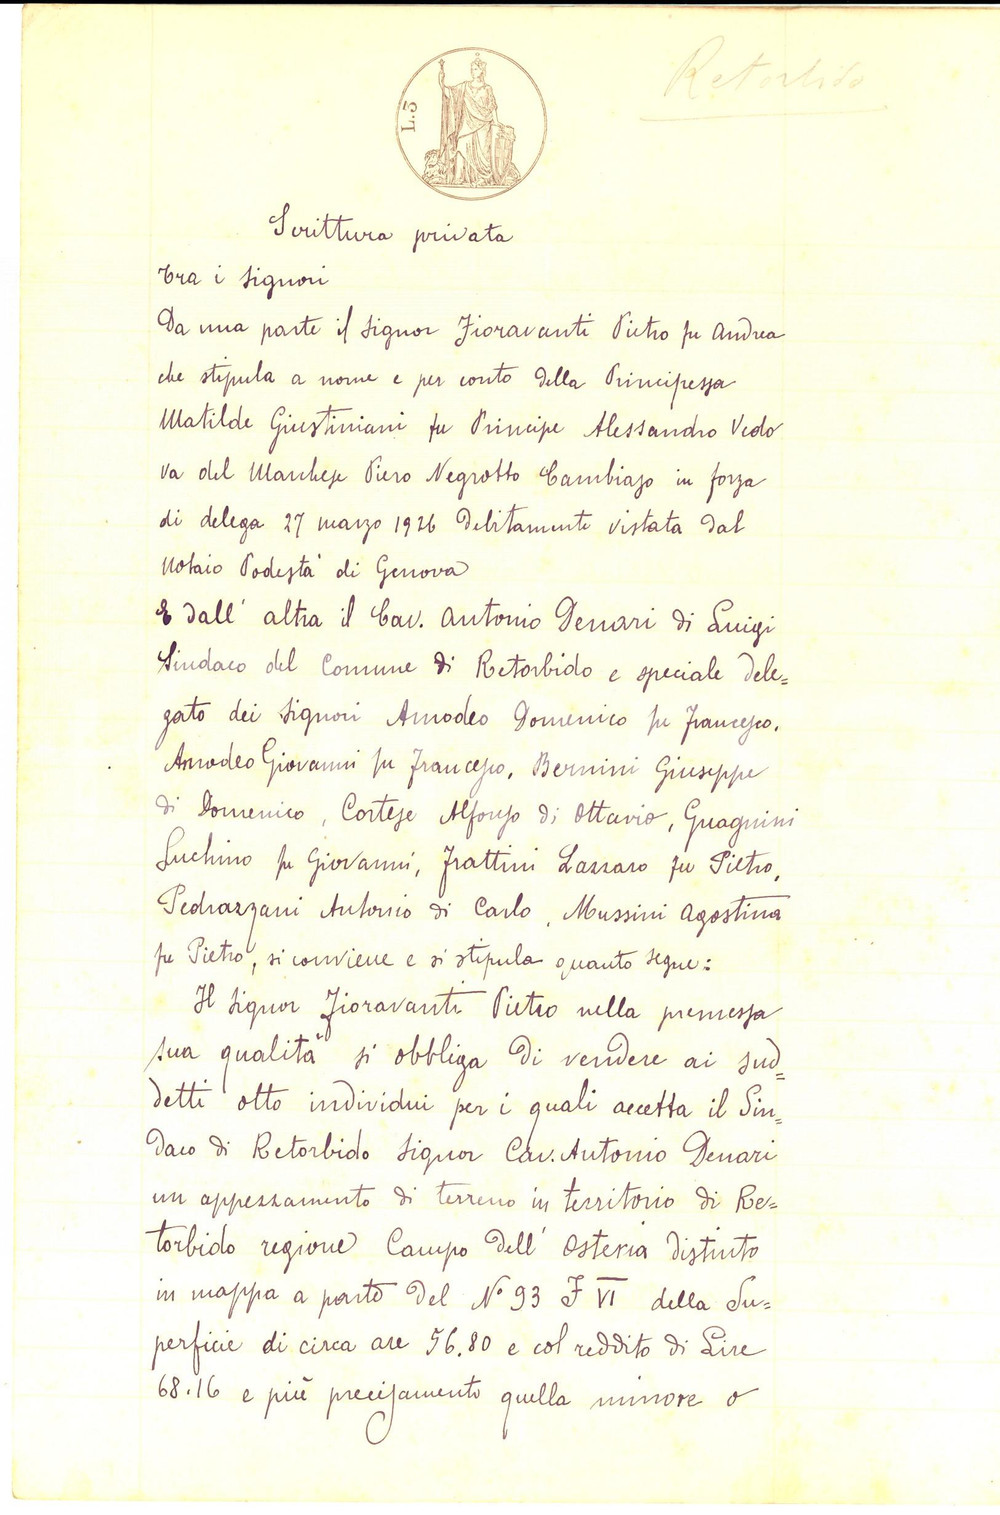 Retorbido
L.3
Scrittura privata
Tra i Signori
Da una parte il Signor Fioravanti Pietro fu Andrea
che stipula a nome e per conto della Principessa
Matilde Giustiniani fu Principe Alessandro Vedo
va del Marchese Piero Negrotto Cambiaso in forza
di delega 27 marzo 1926 debitamente vistata dal
Notaio Podestà di Genova
E dall' altra il Cav. Antonio Denari di Luigi
Sindaco del Comune di Retorbido e speciale dele=
gato dei Signori Amodeo Domenico fu Francesco,
Amodeo Giovanni fu Francesco, Bernini Giuseppe
di Domenico, Cortese Alfonso di Ottavio, Guagnini
Luchino fu Giovanni, Frattini Lazzaro fu Pietro,
Pedrazzani Antonio di Carlo, Mussini Agostina
fu Pietro, si conviene e si stipula quanto segue:
Il Signor Fioravanti Pietro nella premessa
sua qualità si obbliga di vendere ai sud=
detti otto individui per i quali accetta il Sin=
daco di Retorbido Signor Cav. Antonio Denari
un appezzamento di terreno in territorio di Re=
torbido regione Campo dell' Osteria distinto
in mappa a parte del N° 93 F VI della Su=
perficie di circa are 56.80 e col reddito di Lire
68.16 e più precisamente quella minore o